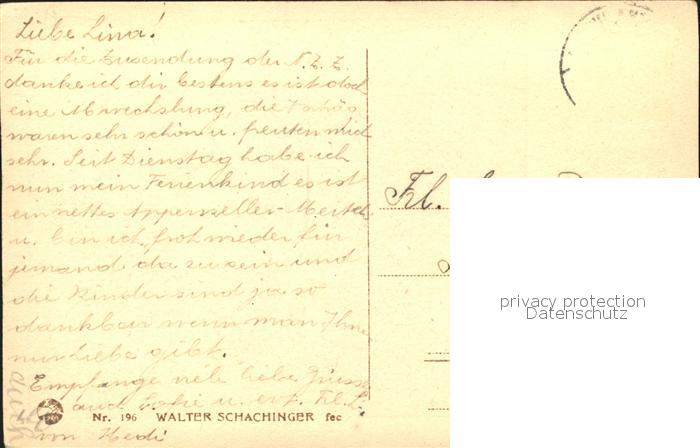 Liebe Lina!
Für die Zusendung der N.Z.Z.
danke ich dir bestens es ist doch
eine Abwechslung, die
waren sehr schön u. freuten mich
sehr. Seit Dienstag habe ich
nun mein Ferienkind es ist
ein nettes Appenzeller-
u. bin ich froh wieder für
jemand da zu sein und
die Kinder sind ja so
dankbar wenn man Ihne
nur Liebe gibt.
Empfange viele liebe Grüsse
auch u. Frl. L.
von Hedi
Nr. 196 WALTER SCHACHINGER fec
Frl.
privacy protection
Datenschutz